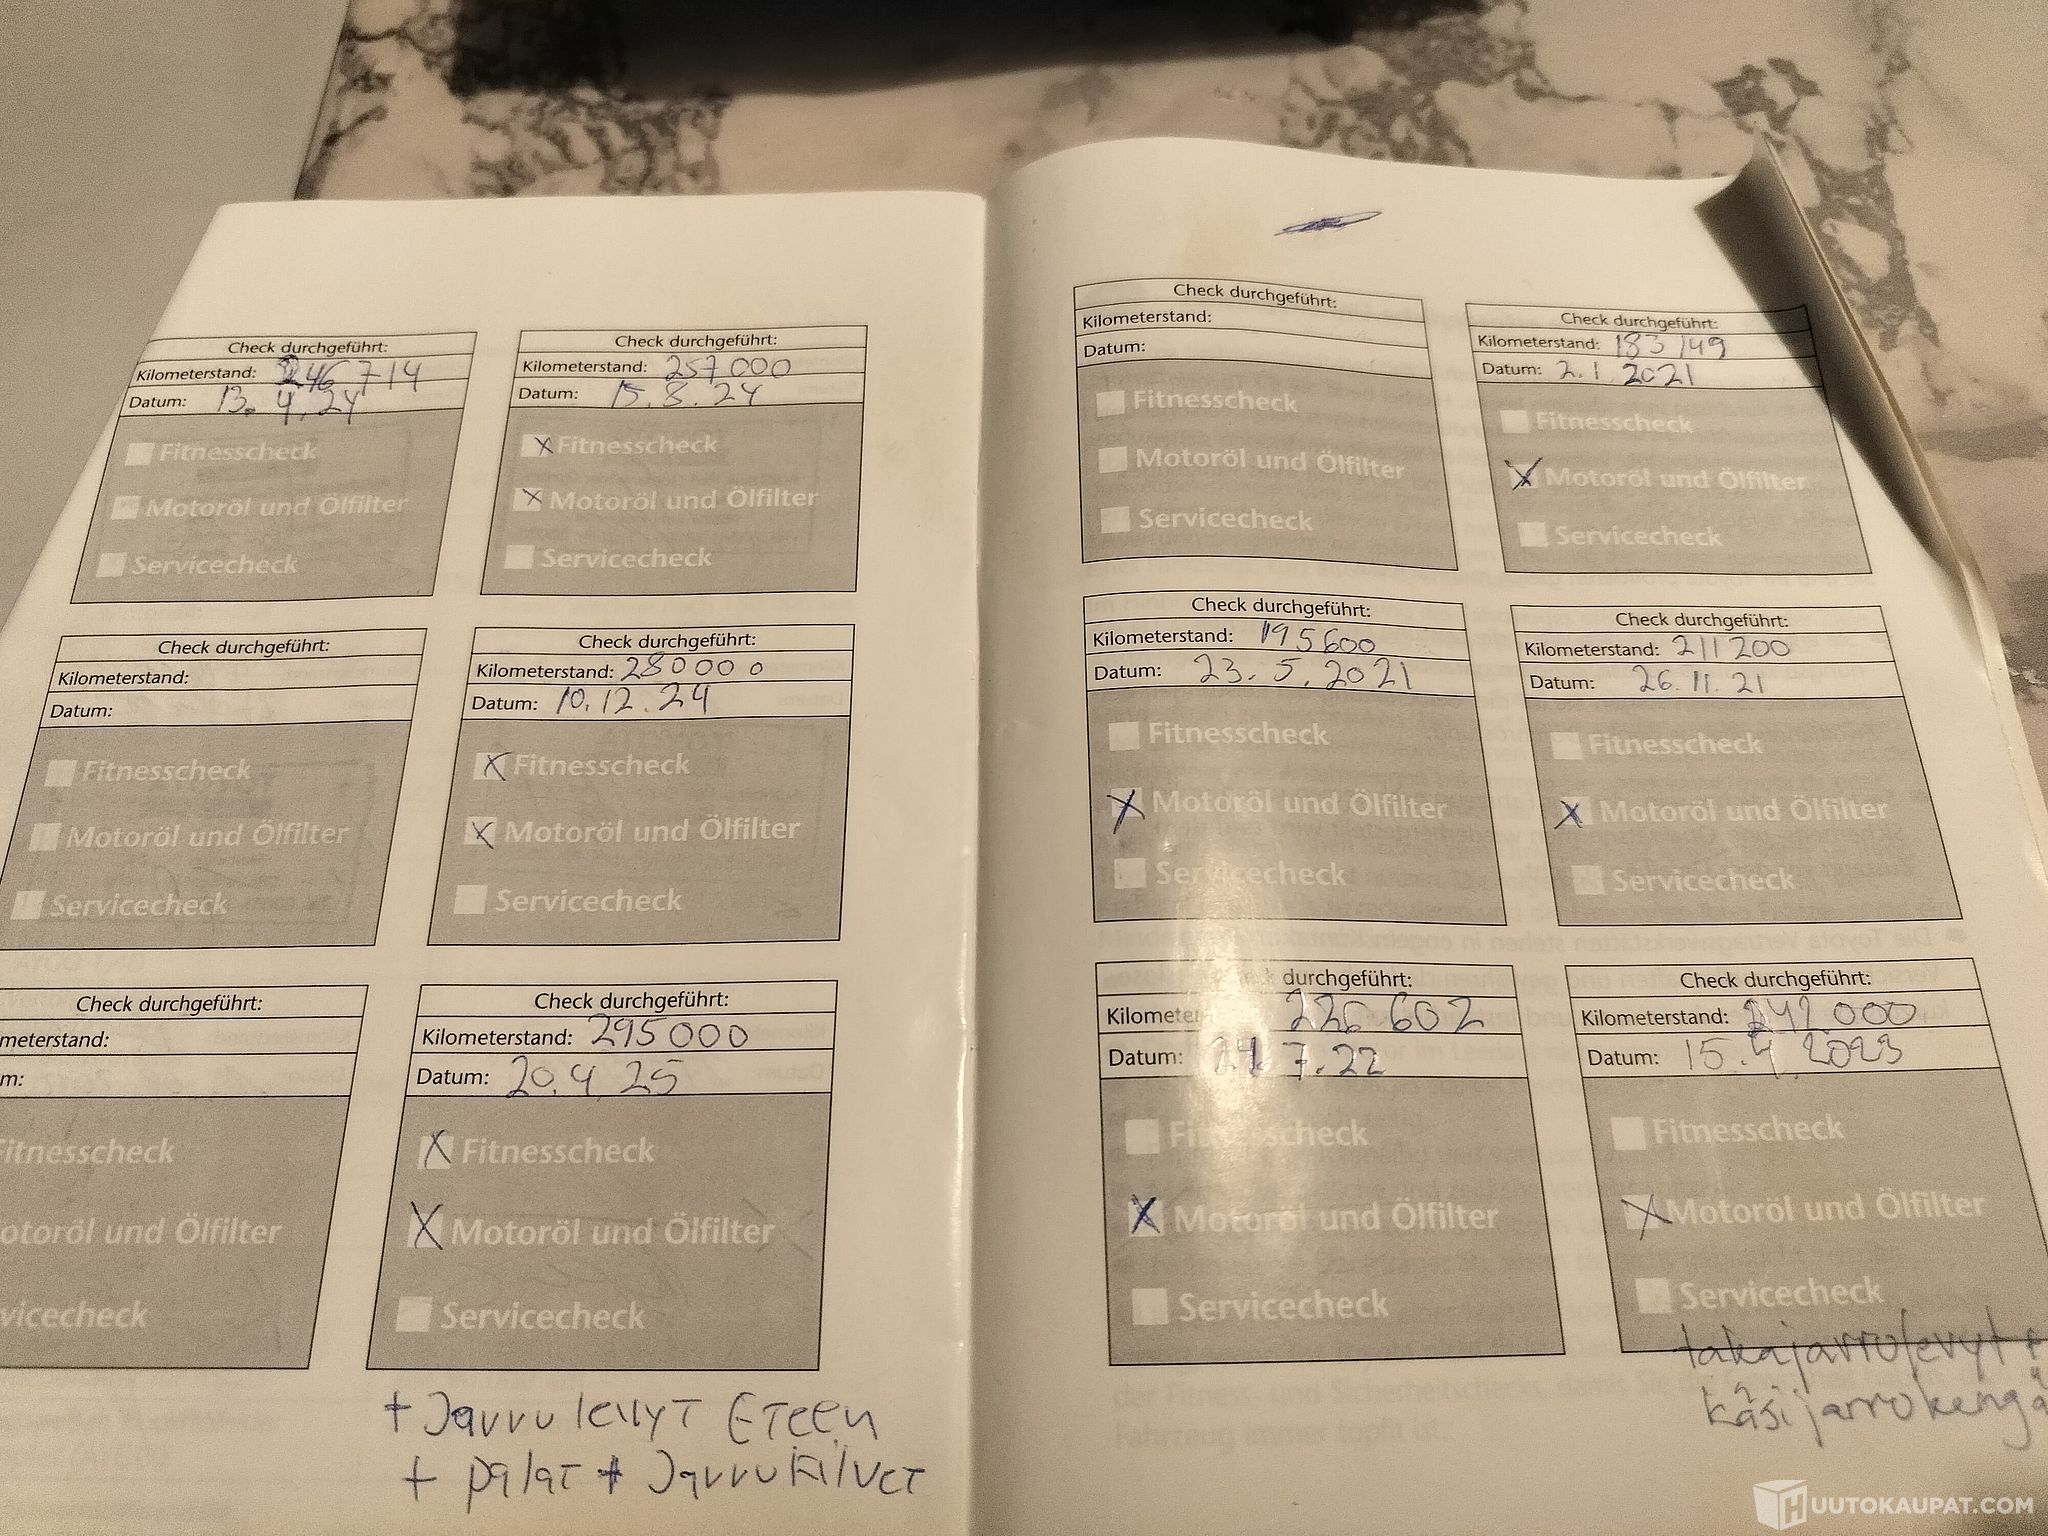 Check durchgeführt:
Kilometerstand: 246714
Datum: 13. 4. 24
Fitnesscheck
Motoröl und Ölfilter
Servicecheck
Check durchgeführt:
Kilometerstand: 257000
Datum: 15. 8. 24
x Fitnesscheck
x Motoröl und Ölfilter
Servicecheck
Check durchgeführt:
Kilometerstand:
Datum:
Fitnesscheck
Motoröl und Ölfilter
Servicecheck
Check durchgeführt:
Kilometerstand: 280000
Datum: 10. 12. 24
x Fitnesscheck
x Motoröl und Ölfilter
Servicecheck
Check durchgeführt:
meterstand:
m:
Fitnesscheck
otoröl und Ölfilter
vicecheck
Check durchgeführt:
Kilometerstand: 295000
Datum: 20. 4 25
x Fitnesscheck
x Motoröl und Ölfilter
Servicecheck
+ Jarrulevyt Eteen
+ palat + Jarrukilvet
Check durchgeführt:
Kilometerstand:
Datum:
Fitnesscheck
Motoröl und Ölfilter
Servicecheck
Check durchgeführt:
Kilometerstand: 183149
Datum: 2. 1. 2021
Fitnesscheck
x Motoröl und Ölfilter
Servicecheck
Check durchgeführt:
Kilometerstand: 195600
Datum: 23. 5. 2021
Fitnesscheck
x Motoröl und Ölfilter
Servicecheck
Check durchgeführt:
Kilometerstand: 211200
Datum: 26. 11. 21
Fitnesscheck
x Motoröl und Ölfilter
Servicecheck
durchgeführt:
Kilomete 226 602
Datum: 7. 22
Fitnesscheck
x Motoröl und Ölfilter
Servicecheck
Check durchgeführt:
Kilometerstand: 242000
Datum: 15. 4. 2023
Fitnesscheck
x Motoröl und Ölfilter
Servicecheck
takajarrulevyt +
käsijarrukengä
HUUTOKAUPAT.COM